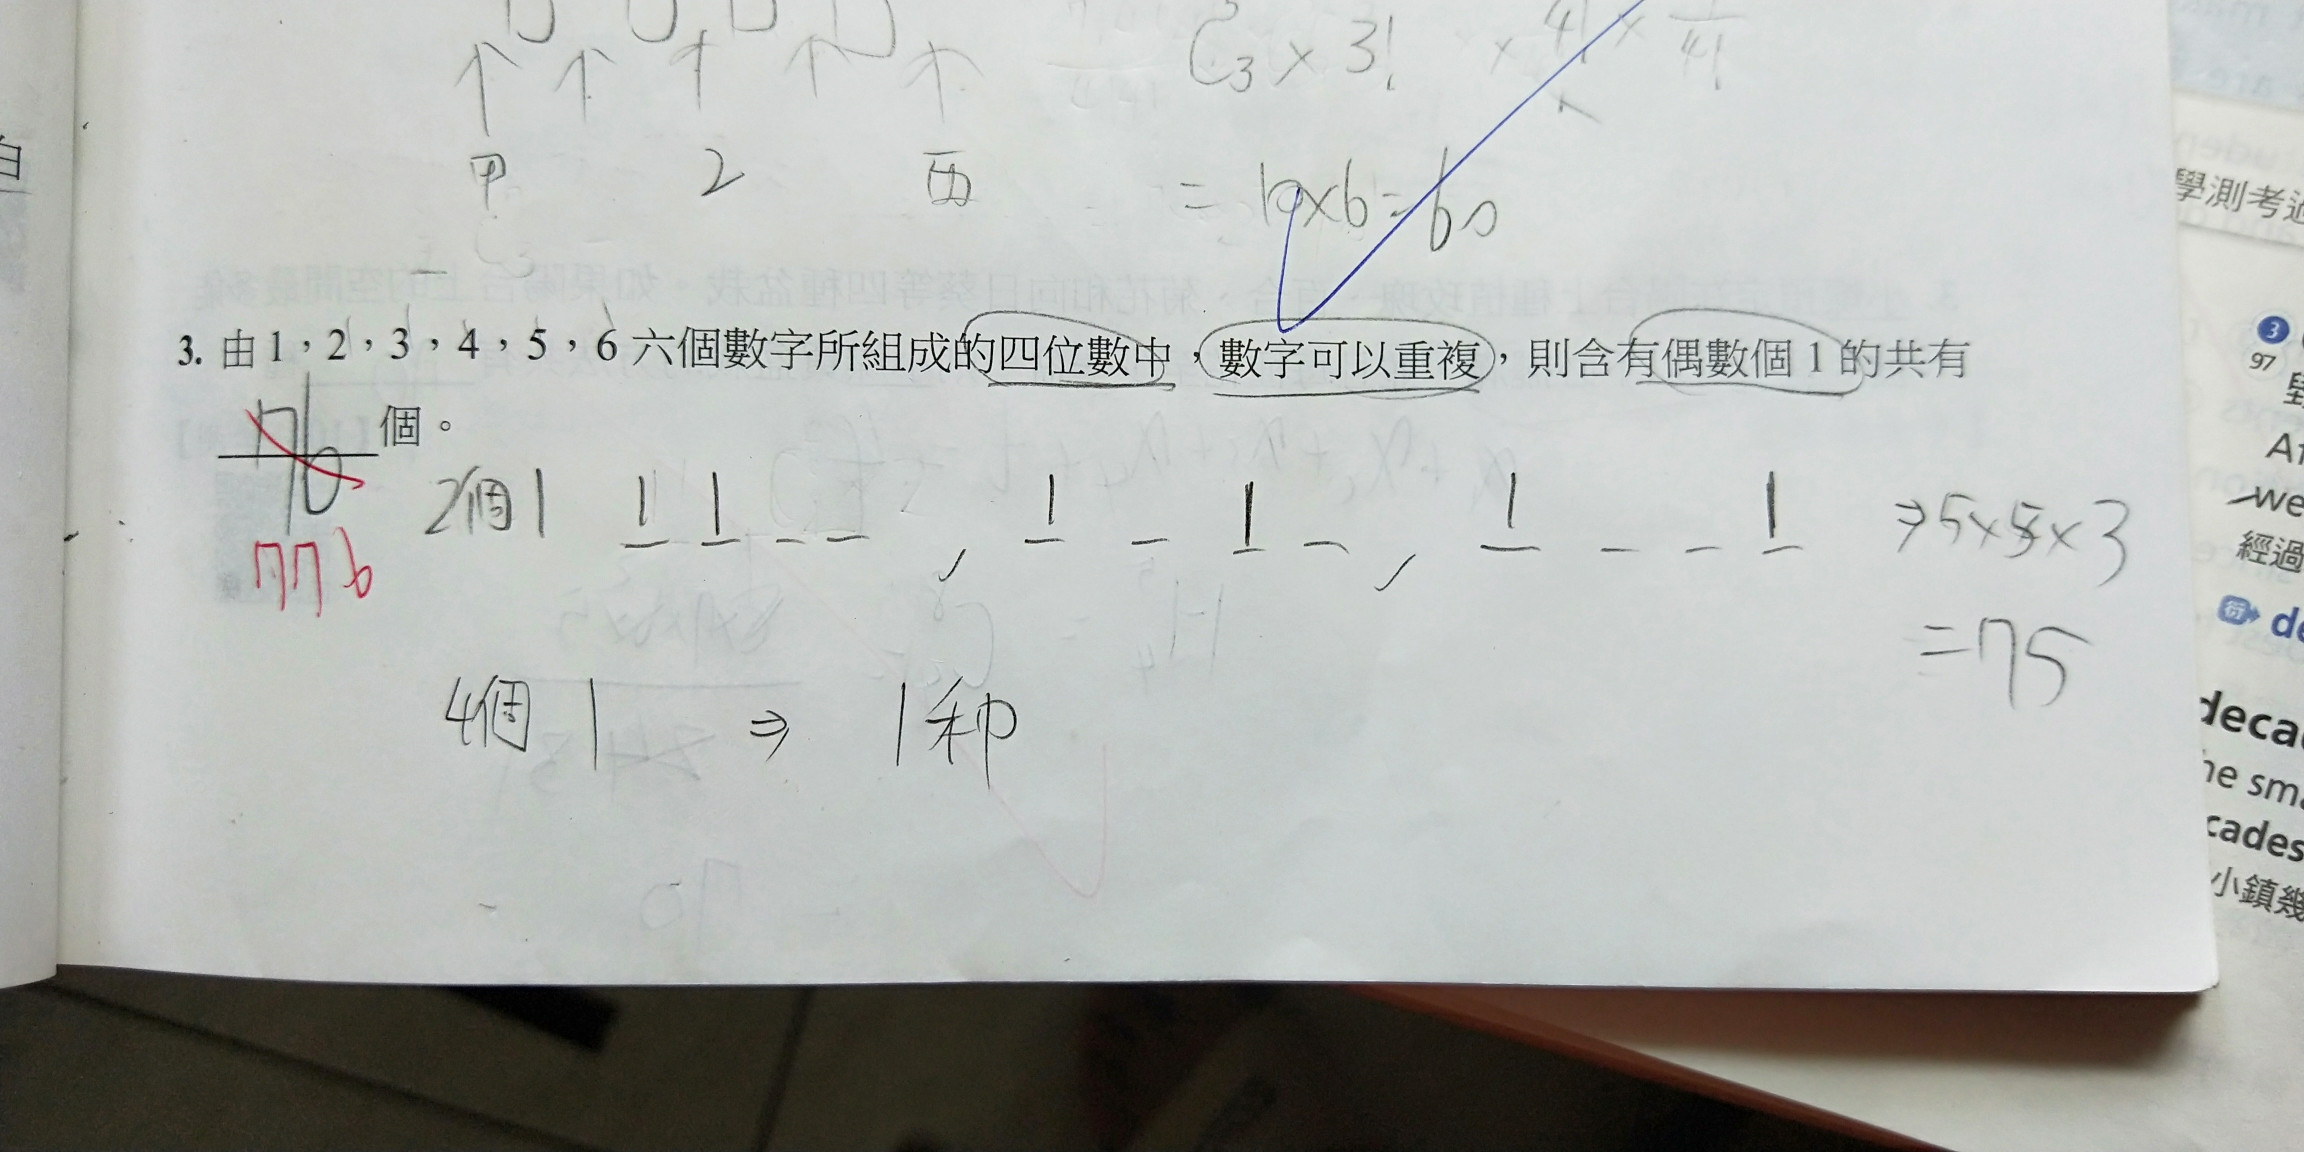 C₃ × 3! × 4! × 1/4!
甲 2 丙 = 10×6=60
白
3. 由1,2,3,4,5,6六個數字所組成的四位數中,數字可以重複,則含有偶數個1的共有
76 個。
776
2個1 1 1 _ _ , 1 _ 1 _ , 1 _ _ 1 ⇒5×5×3
=75
4個1 ⇒ 1种
學測考過
3
97
Af
we
經過
衍 de
decad
he sma
cades
小鎮幾